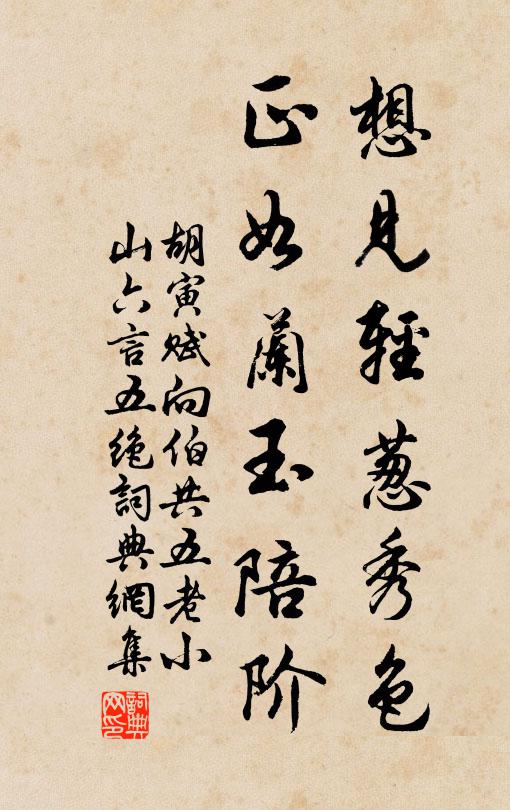 想見輕葱秀色
正如蘭玉陪阶
胡寅賦向伯共五老小
山六言五絕詞典網集
詞典网印